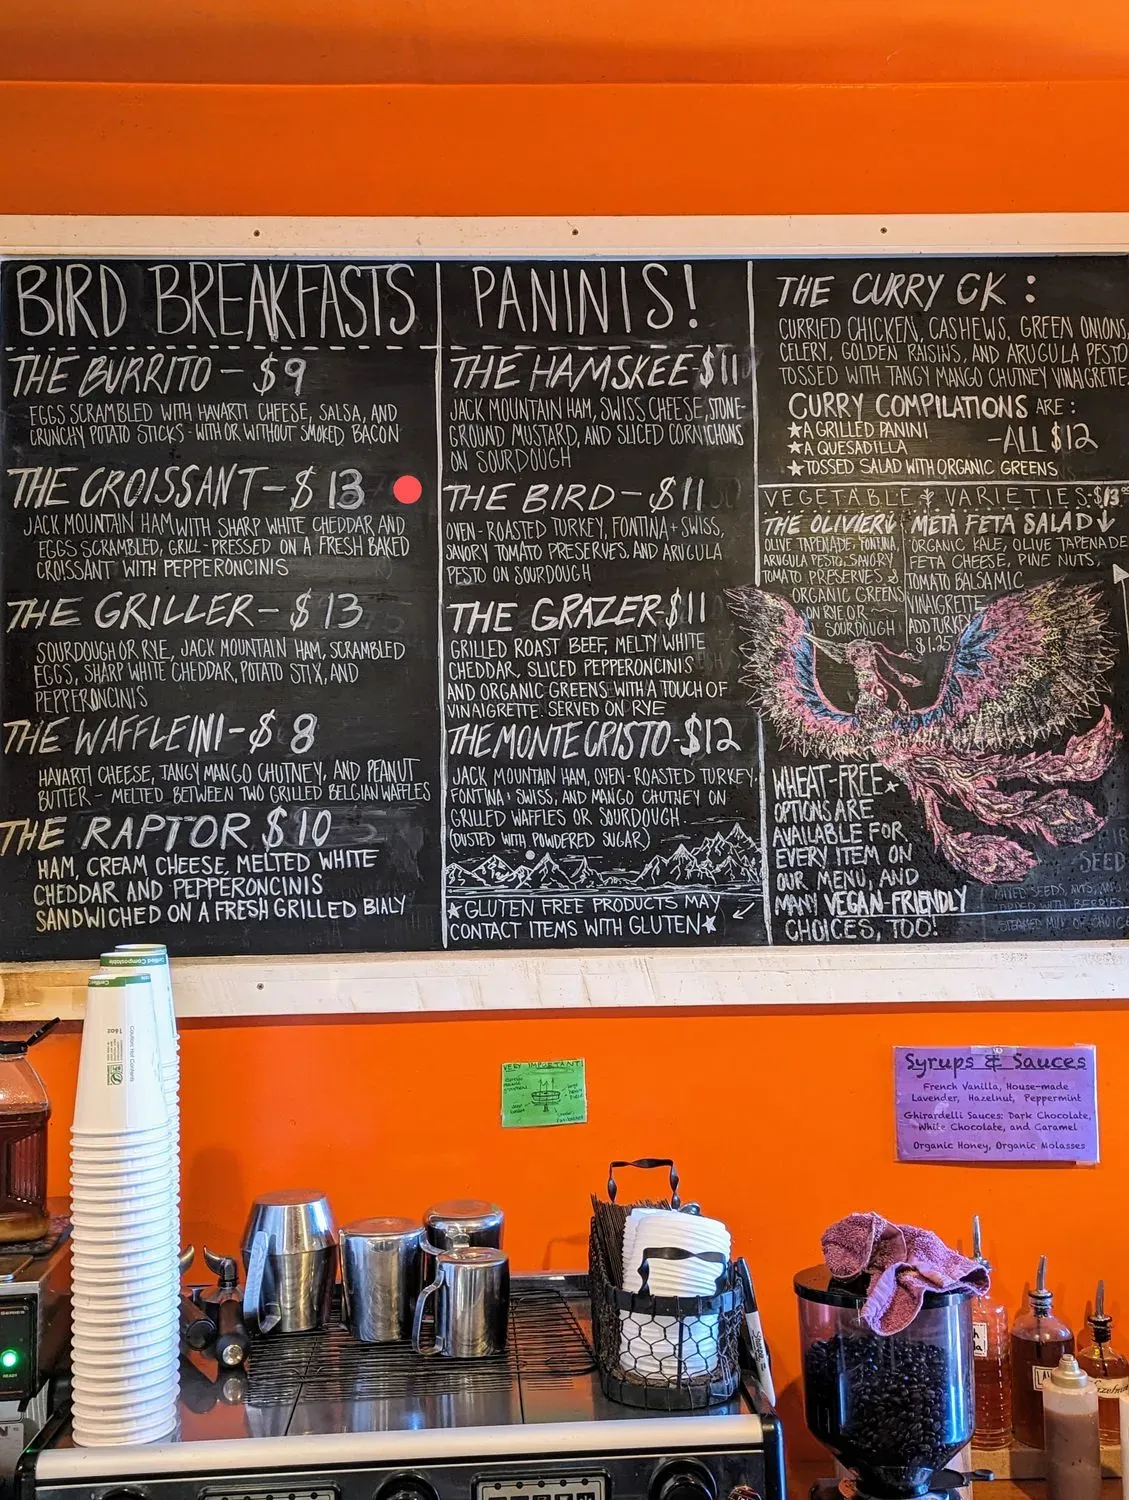 BIRD BREAKFASTS
THE BURRITO - $9
EGGS SCRAMBLED WITH HAVARTI CHEESE, SALSA, AND
CRUNCHY POTATO STICKS - WITH OR WITHOUT SMOKED BACON
THE CROISSANT - $13
JACK MOUNTAIN HAM WITH SHARP WHITE CHEDDAR AND
EGGS SCRAMBLED, GRILL-PRESSED ON A FRESH BAKED
CROISSANT WITH PEPPERONCINIS
THE GRILLER - $13
SOURDOUGH OR RYE, JACK MOUNTAIN HAM, SCRAMBLED
EGGS, SHARP WHITE CHEDDAR, POTATO STIX, AND
PEPPERONCINIS
THE WAFFLEINI - $8
HAVARTI CHEESE, TANGY MANGO CHUTNEY, AND PEANUT
BUTTER - MELTED BETWEEN TWO GRILLED BELGIAN WAFFLES
THE RAPTOR $10
HAM, CREAM CHEESE, MELTED WHITE
CHEDDAR AND PEPPERONCINIS
SANDWICHED ON A FRESH GRILLED BIALY
PANINIS!
THE HAMSKEE - $11
JACK MOUNTAIN HAM, SWISS CHEESE, STONE-
GROUND MUSTARD, AND SLICED CORNICHONS
ON SOURDOUGH
THE BIRD - $11
OVEN-ROASTED TURKEY, FONTINA + SWISS,
SAVORY TOMATO PRESERVES, AND ARUGULA
PESTO ON SOURDOUGH
THE GRAZER - $11
GRILLED ROAST BEEF, MELTY WHITE
CHEDDAR, SLICED PEPPERONCINIS
AND ORGANIC GREENS WITH A TOUCH OF
VINAIGRETTE. SERVED ON RYE
THE MONTE CRISTO - $12
JACK MOUNTAIN HAM, OVEN-ROASTED TURKEY,
FONTINA + SWISS, AND MANGO CHUTNEY ON
GRILLED WAFFLES OR SOURDOUGH.
(DUSTED WITH POWDERED SUGAR)
★GLUTEN FREE PRODUCTS MAY
CONTACT ITEMS WITH GLUTEN★
THE CURRY CK:
CURRIED CHICKEN, CASHEWS, GREEN ONIONS,
CELERY, GOLDEN RAISINS, AND ARUGULA PESTO
TOSSED WITH TANGY MANGO CHUTNEY VINAIGRETTE.
CURRY COMPILATIONS ARE:
★A GRILLED PANINI
★A QUESADILLA
-ALL $12
★TOSSED SALAD WITH ORGANIC GREENS
VEGETABLE & VARIETIES - $13
THE OLIVIERI
OLIVE TAPENADE, FONTINA,
ARUGULA PESTO, SAVORY
TOMATO PRESERVES &
ORGANIC GREENS
ON RYE OR
SOURDOUGH
META FETA SALAD
ORGANIC KALE, OLIVE TAPENADE
FETA CHEESE, PINE NUTS,
TOMATO BALSAMIC
VINAIGRETTE
ADD TURKEY
$1.25
WHEAT-FREE★
OPTIONS ARE
AVAILABLE FOR
EVERY ITEM ON
OUR MENU, AND
MANY VEGAN-FRIENDLY
CHOICES, TOO!
SEED
VERY IMPORTANT!
Syrups & Sauces
French Vanilla, House-made
Lavender, Hazelnut, Peppermint
Ghirardelli Sauces: Dark Chocolate,
White Chocolate, and Caramel
Organic Honey, Organic Molasses
Certified Compostable
16oz
Caution: Hot Contents
READY